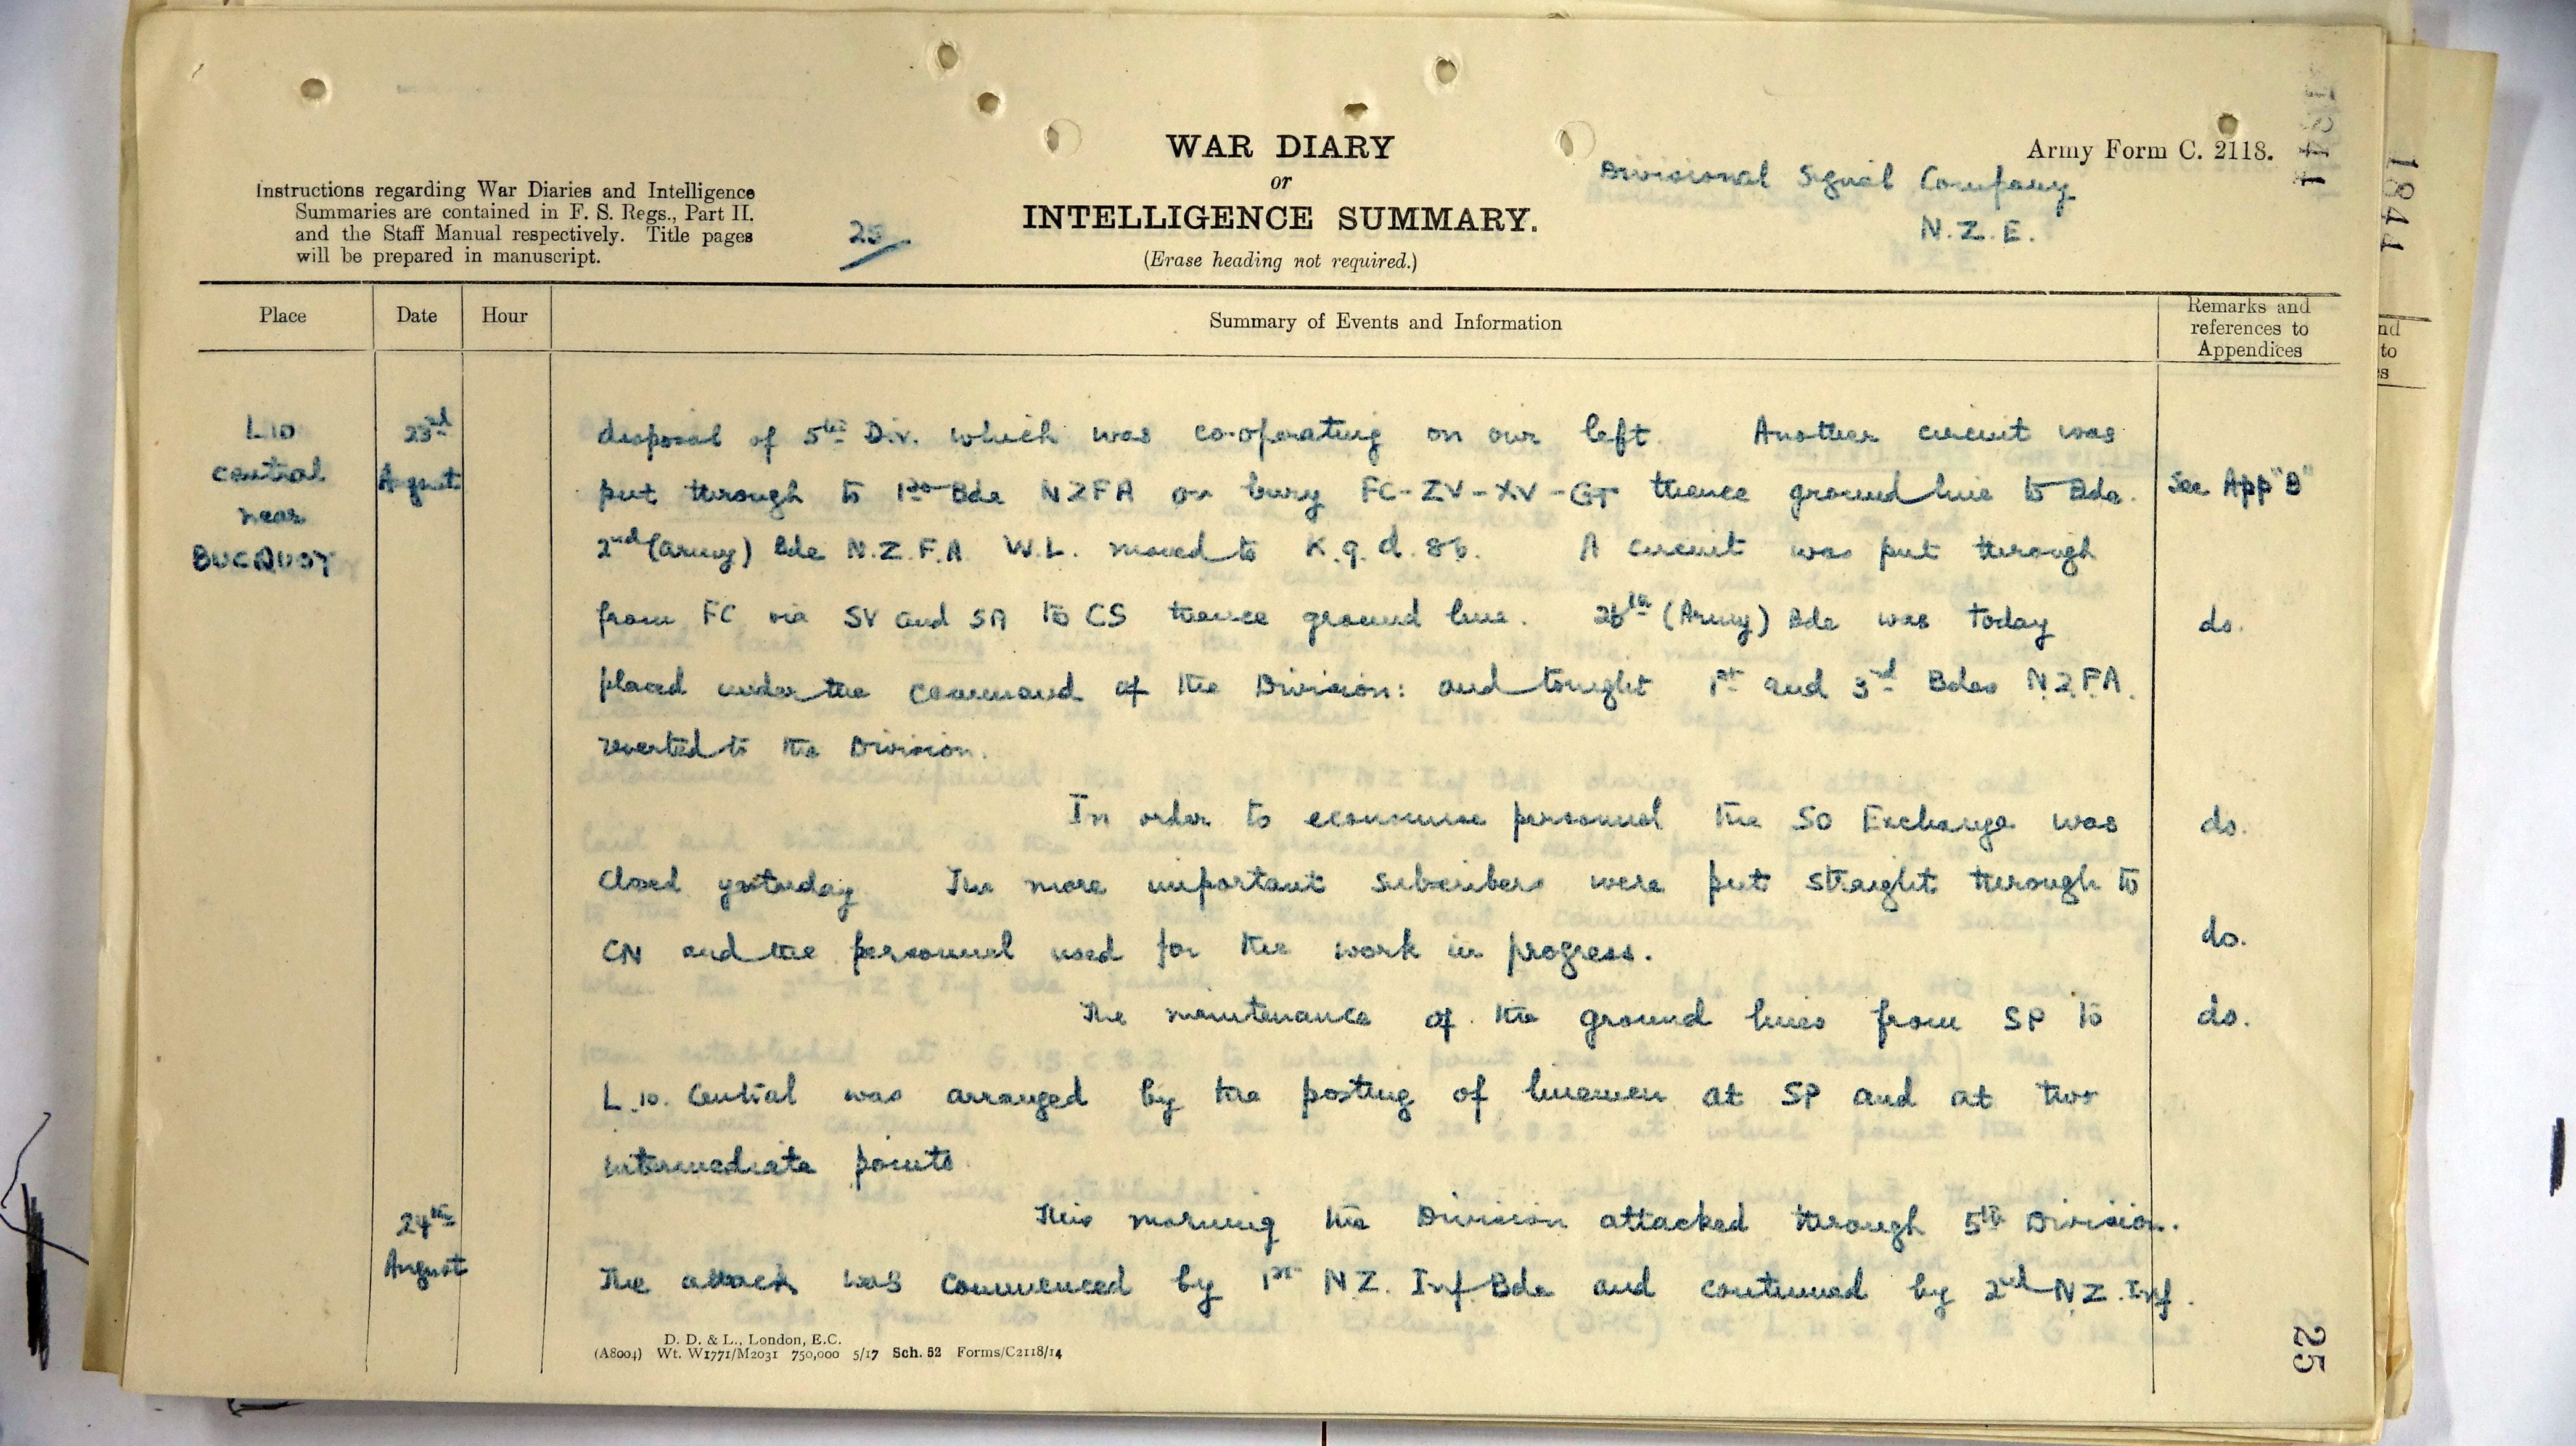 WAR DIARY
or
INTELLIGENCE SUMMARY.
(Erase heading not required.)
Army Form C. 2118.
Divisional Signal Company
N.Z.E.
Instructions regarding War Diaries and Intelligence
Summaries are contained in F. S. Regs., Part II.
and the Staff Manual respectively. Title pages
will be prepared in manuscript.
25
1841
Place Date Hour Summary of Events and Information Remarks and references to Appendices
nd
to
s
L10
central
near
BUCQUOY
23rd
August
disposal of 5th Div. which was co-operating on our left. Another circuit was
put through to 1st Bde NZFA on bury FC-ZV-XV-GT thence ground line to Bde. See App "B"
2nd (Army) Bde N.Z.F.A. W.L. moved to K.9.d.86. A circuit was put through
from FC via SV and SA to CS thence ground line. 26th (Army) Bde was today do.
placed under the command of the Division: and tonight 1st and 3rd Bdes N.Z.F.A.
reverted to the Division.
In order to economise personnel the SO Exchange was do.
closed yesterday. The more important subscribers were put straight through to
CN and the personnel used for the work in progress. do.
The maintenance of the ground lines from SP to do.
L.10. Central was arranged by the posting of linemen at SP and at two
intermediate points
24th
August
This morning the Division attacked through 5th Division.
The attack was commenced by 1st N.Z. Inf Bde and continued by 2nd N.Z. Inf.
D. D. & L., London, E.C.
(A8004) Wt. W1771/M2031 750,000 5/17 Sch. 52 Forms/C2118/14
25